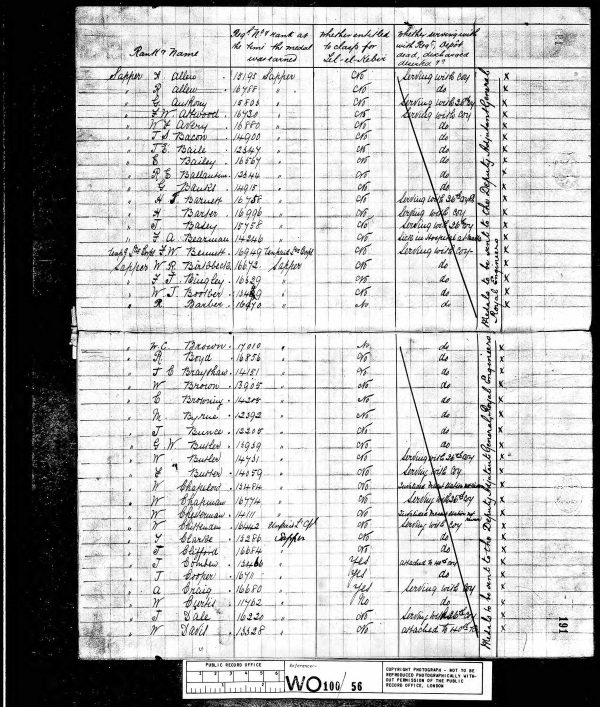 Rank & Name
Regtl No & rank at the time the medal was earned
Whether entitled to clasp for Tel-el-Kebir
Whether serving with with Regt, Depôt dead, discharged deserted &c
Sapper Allen 15195 Sapper No Serving with Coy x
" R Allen 16758 " No do x
" G Anthony " No Serving with 26th Coy x
" F. W. Attwood 16730 " No Serving with Coy x
" W Avery 16880 " No do x
" T. S. Bacon 14900 " No do x
" J. E. Baile 12347 " No do x
" E Bailey 16567 " No do x
" R E Ballantine 13344 " No do x
" G Banks 14915 " No do x
" H J Barnett " No Serving with 26th Coy x
" H Barter 16996 " No Serving with Coy x
" J Basey 15758 " No Serving with 26th Coy x
" F. A. Bearman 14246 " No Sick in Hospital x
F. W. Bennett 16949 No Serving with Coy x
Sapper W R 16672 Sapper No do x
" F. J. Bingley " No do x
" W. J. " No do x
" R Barber 16970 " No do x
" W. C. Brown 17010 " No do x
" R Boyd 16856 " No do x
" J C Brayshaw 14151 " No do x
" W Brown 13905 " No do x
" C Browning " No do x
" M Byrne 12392 " No do x
" J Bunce " No do x
" G. W Butler 13939 " No do x
" W Butler 14731 " No Serving with 26th Coy x
" Butter 14059 " No Serving with Coy x
" W 13484 " No x
" W Chapman 16774 " No Serving with 26th Coy x
" W Chesterman 14111 " No x
" W Chittenden 16442 No Serving with Coy x
" Clarke 15286 Sapper No do x
" J. Clifford 16684 " No do x
" J Comben 13466 " Yes attached to 40th Coy x
" J Cooper " Yes do x
" A Craig 16680 " Yes Serving with Coy x
" W Curtis 11762 " No do x
" J Dale 16220 " No Serving with 26th Coy x
" W Davis 13328 " No attached to 40th Coy x
Medals to be sent to the Deputy Adjutant General Royal Engineers
Medals to be sent to the Deputy Adjutant General, Royal Engineers
191
PUBLIC RECORD OFFICE
Reference:-
WO 100 / 56
COPYRIGHT PHOTOGRAPH - NOT TO BE
REPRODUCED PHOTOGRAPHICALLY WITH-
OUT PERMISSION OF THE PUBLIC
RECORD OFFICE, LONDON